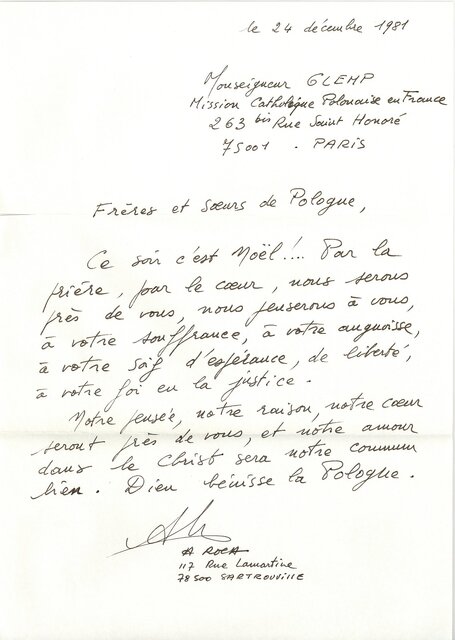 le 24 décembre 1981
Monseigneur GLEMP
Mission Catholique Polonaise en France
263 bis Rue Saint Honoré
75001 - PARIS
Frères et Sœurs de Pologne,
Ce soir c'est Noël!... Par la
prière, par le cœur, nous serons
près de vous, nous penserons à vous,
à votre souffrance, à votre angoisse,
à votre soif d'espérance, de liberté,
à votre foi en la justice.
Notre pensée, notre raison, notre cœur
seront près de vous, et notre amour
dans le Christ sera notre commun
lien. Dieu bénisse la Pologne.
A ROCA
117 Rue Lamartine
78500 SARTROUVILLE